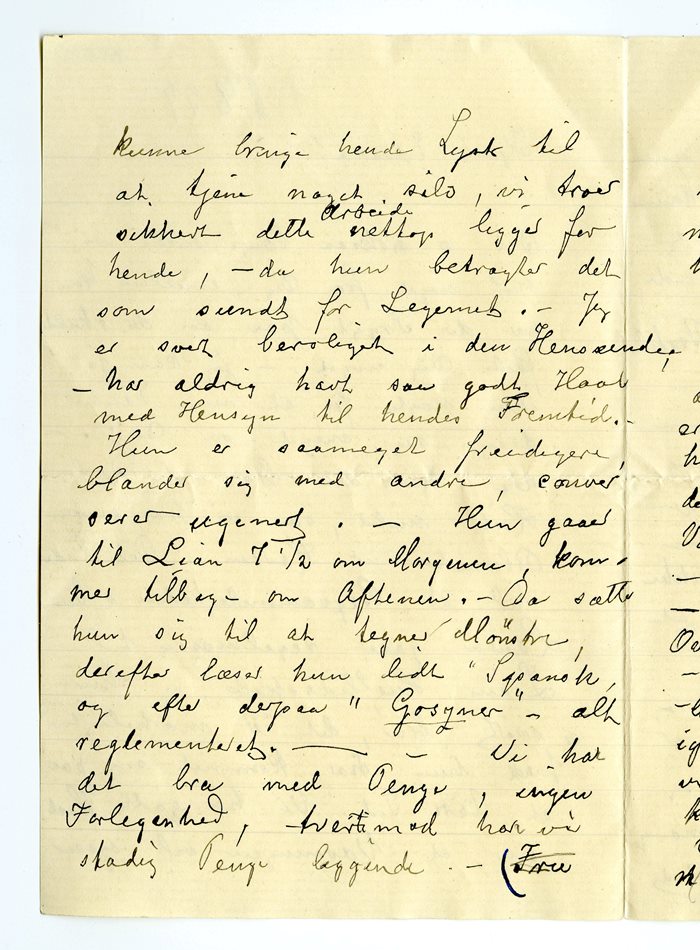 kunne bringe hende Lyst til
at tjene noget selv, vi troer
arbeide
sikkert dette nettop ligger for
hende, – da hun betragter det
som sundt for Legemet. – Jeg
er svert beroliget i den Henseende,
– har aldrig havt saa godt Haab
med Hensyn til hendes Fremtid. –
Hun er saameget freidigere,
blander sig med andre, conver
serer ugenert. – Hun gaaer
til Lian 7 1/2 om Morgenen, kom-
mer tilbage om Aftenen. – Da sætter
hun sig til at tegne Mönstre,
derefter læser hun lidt "Spansk,
og efter derpaa " – alt
reglementeret. – – Vi har
det bra med Penge, ingen
Forlegenhed, tvertimod har vi
stadig Penge liggende. – (Fru